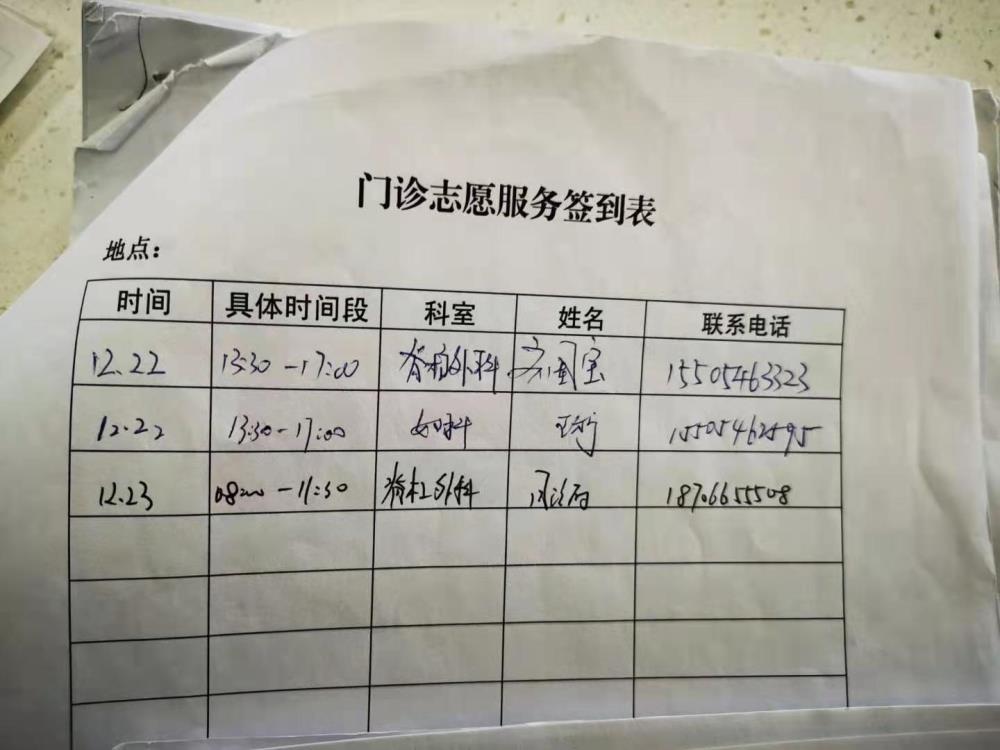 门诊志愿服务签到表
地点：
时间 具体时间段 科室 姓名 联系电话
12.22 13:30-17:00 脊柱外科 国宝 15505463323
12.22 13:30-17:00 妇科 15505462595
12.23 08:00-11:30 脊柱外科 18706655508